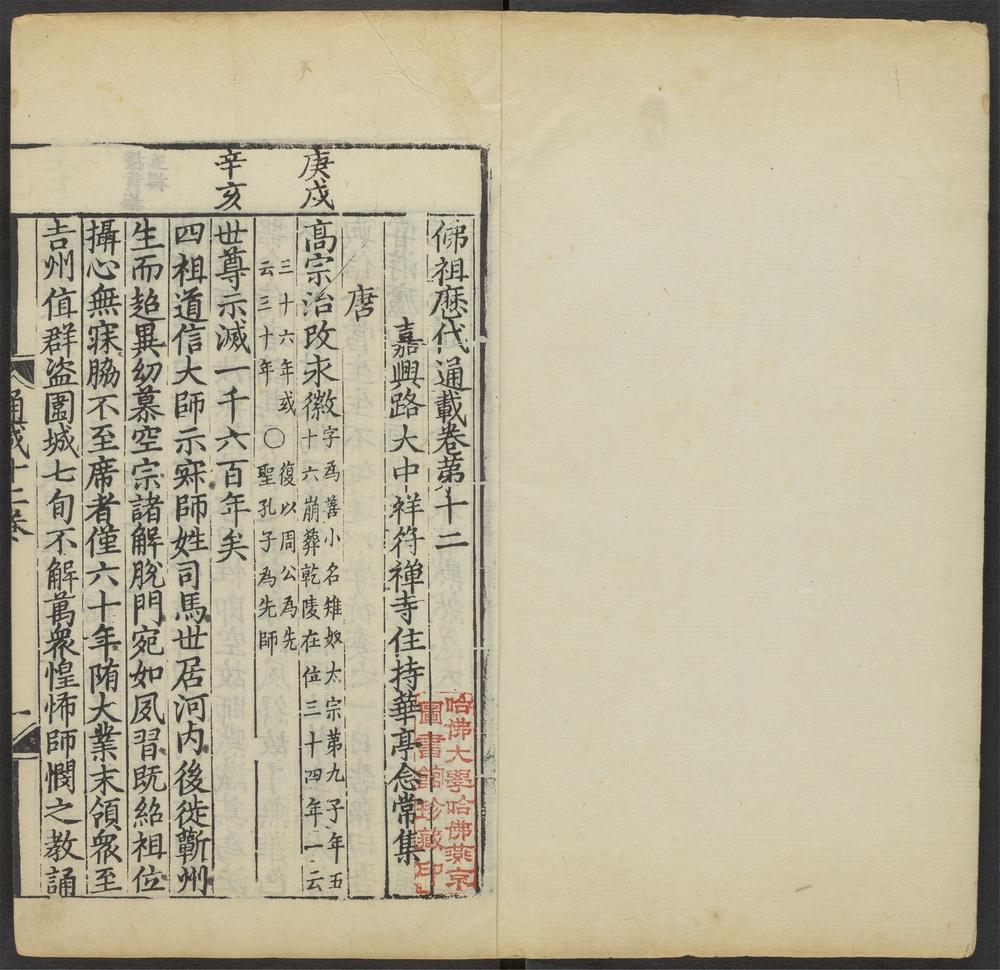 佛祖歷代通載卷第十二
嘉興路大中祥符禪寺住持華亭念常集
唐
庚戌
高宗治改永徽字為善小名雉奴太宗第九子年五
十六崩葬乾陵在位三十四年一云
三十六年或
云三十年
〇復以周公為先
聖孔子為先師
辛亥
世尊示滅一千六百年矣
四祖道信大師示寂師姓司馬世居河內後徙蘄州
生而超異幼慕空宗諸解脫門宛如夙習既紹祖位
攝心無寐脇不至席者僅六十年隋大業末領衆至
吉州值群盜圍城七旬不解萬衆惶怖師愍之教誦
通載十二卷
一
哈佛大學哈佛燕京
圖書館珍藏印